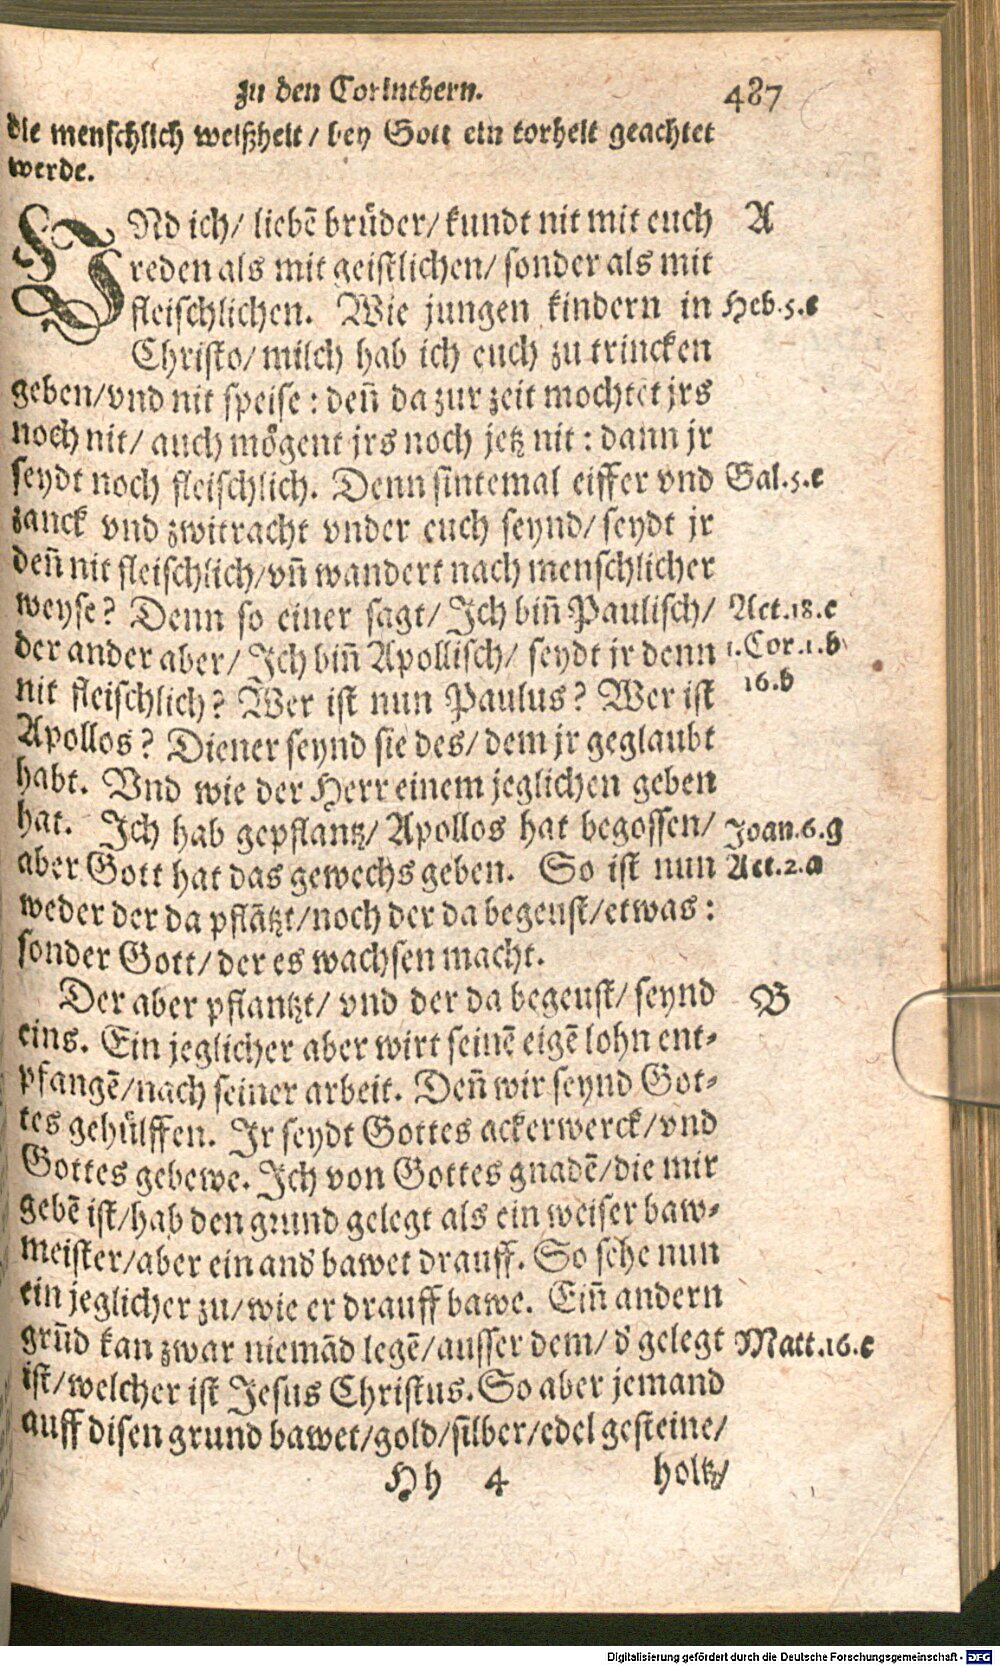 zu den Corinthern. 487
die menschlich weißheit / bey Gott ein torheit geachtet
werde.
VNd ich/ liebē brüder/ kundt nit mit euch A
reden als mit geistlichen/ sonder als mit
fleischlichen. Wie jungen kindern in Heb.5.c
Christo/ milch hab ich euch zu trincken
geben/vnd nit speise : deñ da zur zeit mochtet jrs
noch nit/ auch mögent jrs noch jetz nit : dann jr
seydt noch fleischlich. Denn sintemal eiffer vnd Gal.5.c
zanck vnd zwitracht vnder euch seynd/ seydt jr
deñ nit fleischlich/vñ wandert nach menschlicher
weyse? Denn so einer sagt/ Ich biñ Paulisch/ Act.18.c
der ander aber/ Ich biñ Apollisch/ seydt jr denn 1.Cor.1.b
nit fleischlich? Wer ist nun Paulus? Wer ist 16.b
Apollos? Diener seynd sie des/ dem jr geglaubt
habt. Vnd wie der Herr einem jeglichen geben
hat. Ich hab gepflantz/ Apollos hat begossen/ Joan.6.g
aber Gott hat das gewechs geben. So ist nun Act.2.a
weder der da pflātzt/noch der da begeust/etwas :
sonder Gott/ der es wachsen macht.
Der aber pflantzt/ vnd der da begeust/ seynd B
eins. Ein jeglicher aber wirt seinē eigē lohn ent⸗
pfangē/nach seiner arbeit. Deñ wir seynd Got⸗
tes gehülffen. Ir seydt Gottes ackerwerck/vnd
Gottes gebewe. Ich von Gottes gnadē/die mir
gebē ist/hab den grund gelegt als ein weiser baw⸗
meister/aber ein and' bawet drauff. So sehe nun
ein jeglicher zu/wie er drauff bawe. Eiñ andern
grūd kan zwar niemād legē/ausser dem/ d' gelegt Matt.16.c
ist/welcher ist Jesus Christus. So aber jemand
auff disen grund bawet/gold/silber/edel gesteine/
Hh 4 holtz/
Digitalisierung gefördert durch die Deutsche Forschungsgemeinschaft - DFG